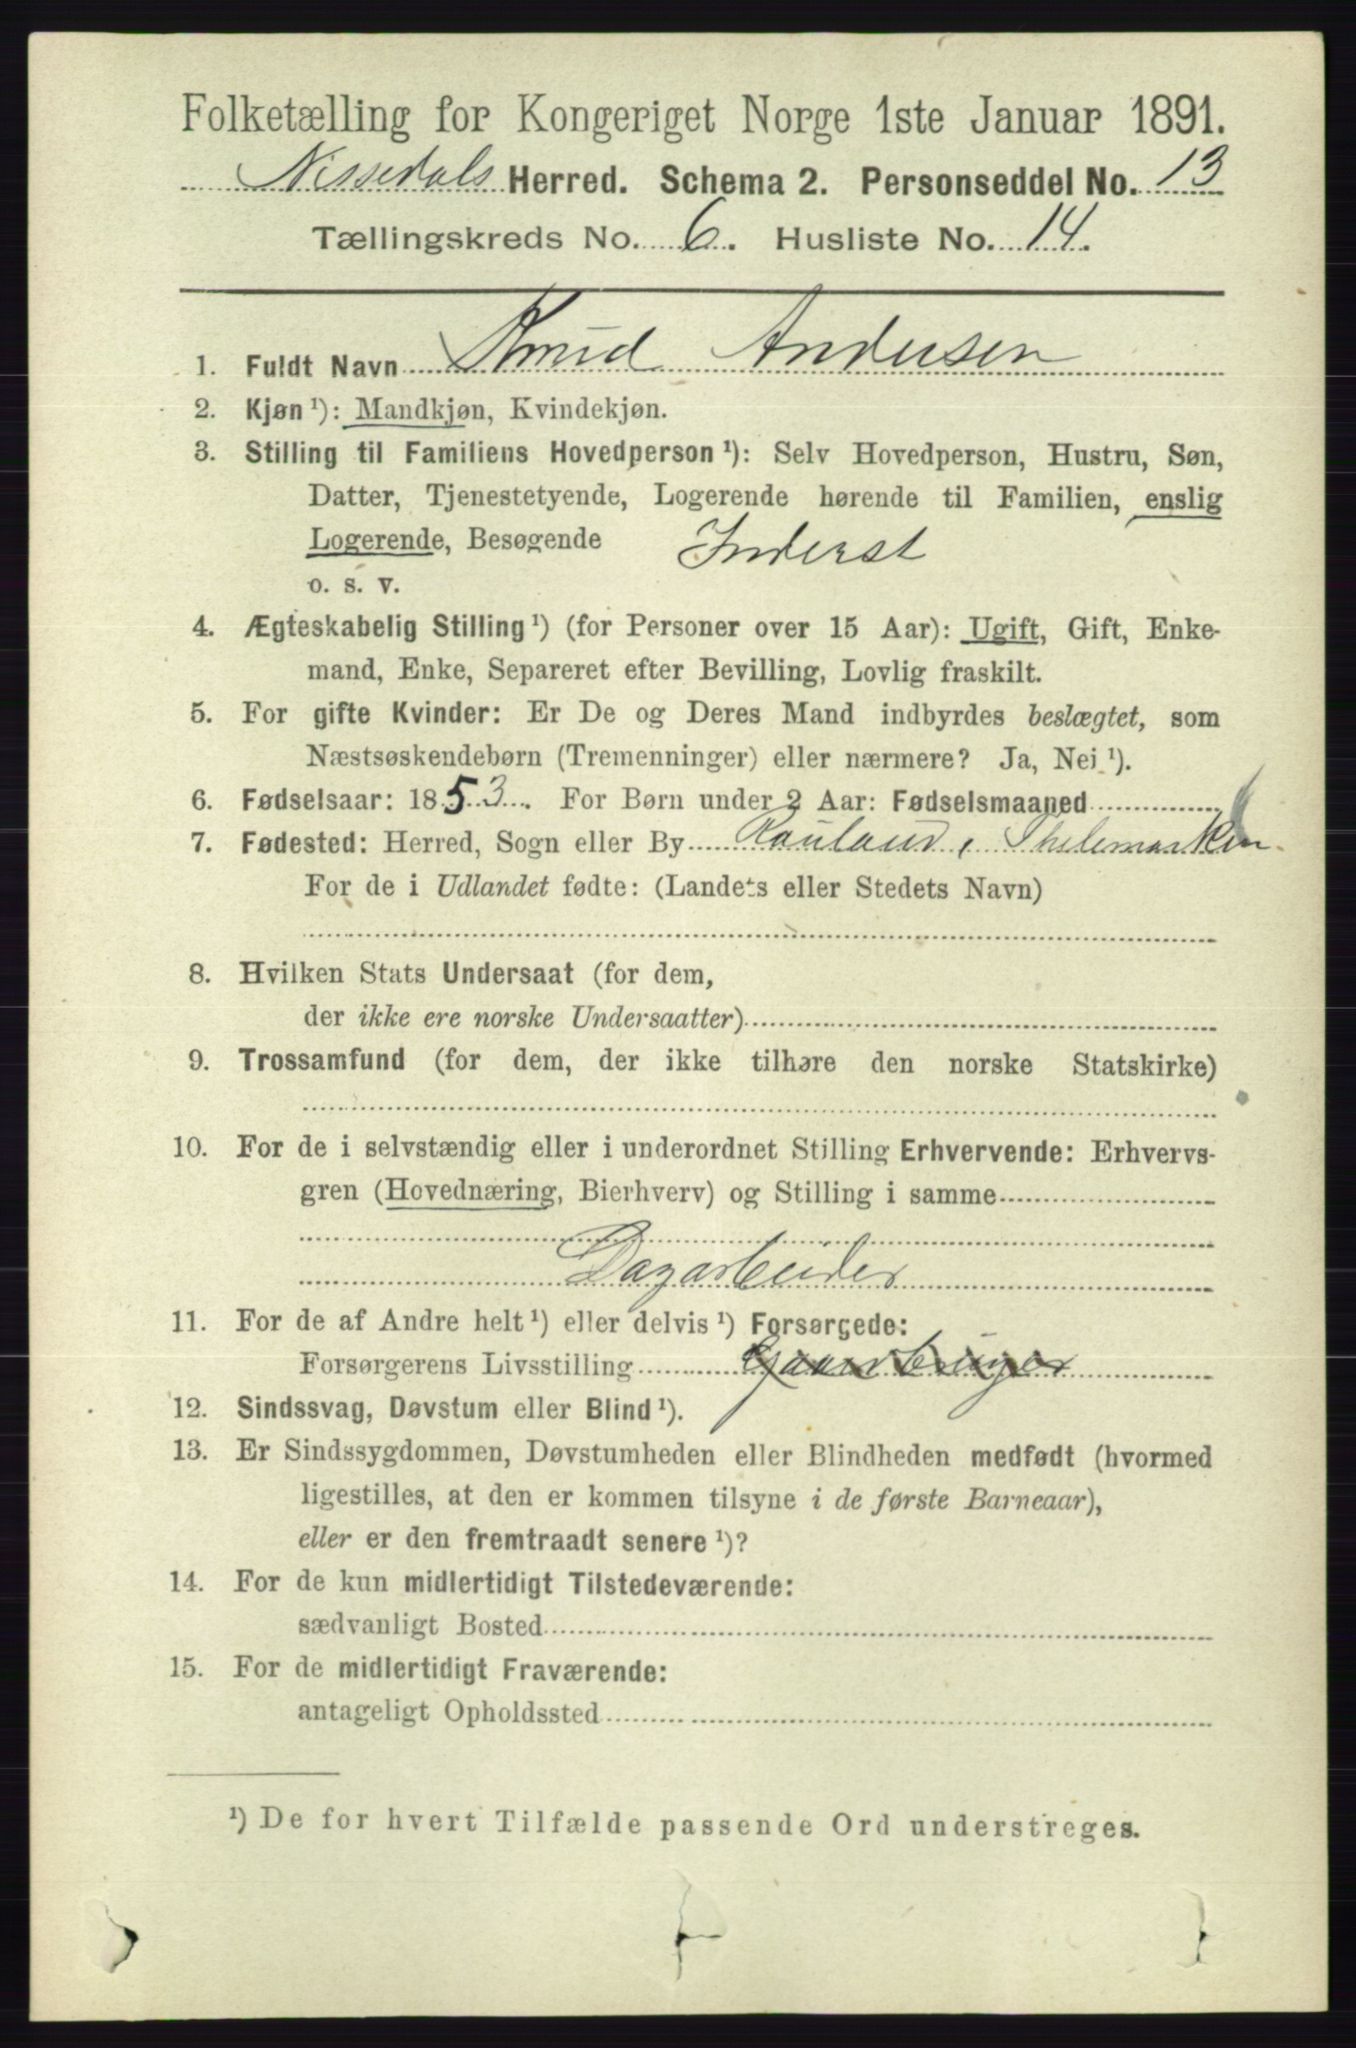 Folketælling for Kongeriget Norge 1ste Januar 1891.
Nissedals Herred. Schema 2. Personseddel No. 13
Tællingskreds No. 6. Husliste No. 14.
1. Fuldt Navn Knud Andersen
2. Kjøn ¹): Mandkjøn, Kvindekjøn.
3. Stilling til Familiens Hovedperson ¹): Selv Hovedperson, Hustru, Søn,
Datter, Tjenestetyende, Logerende hørende til Familien, enslig
Logerende, Besøgende Inderst
o. s. v.
4. Ægteskabelig Stilling ¹) (for Personer over 15 Aar): Ugift, Gift, Enke-
mand, Enke, Separeret efter Bevilling, Lovlig fraskilt.
5. For gifte Kvinder: Er De og Deres Mand indbyrdes beslægtet, som
Næstsøskendebørn (Tremenninger) eller nærmere? Ja, Nei ¹).
6. Fødselsaar: 1853. For Børn under 2 Aar: Fødselsmaaned
7. Fødested: Herred, Sogn eller By Rauland, Thelemarken
For de i Udlandet fødte: (Landets eller Stedets Navn)
8. Hvilken Stats Undersaat (for dem,
der ikke ere norske Undersaatter)
9. Trossamfund (for dem, der ikke tilhøre den norske Statskirke)
10. For de i selvstændig eller i underordnet Stilling Erhvervende: Erhvervs-
gren (Hovednæring, Bierhverv) og Stilling i samme
Dagarbeider
11. For de af Andre helt ¹) eller delvis ¹) Forsørgede:
Forsørgerens Livsstilling Gaardbruger
12. Sindssvag, Døvstum eller Blind ¹).
13. Er Sindssygdommen, Døvstumheden eller Blindheden medfødt (hvormed
ligestilles, at den er kommen tilsyne i de første Barneaar),
eller er den fremtraadt senere ¹)?
14. For de kun midlertidigt Tilstedeværende:
sædvanligt Bosted
15. For de midlertidigt Fraværende:
antageligt Opholdssted
¹) De for hvert Tilfælde passende Ord understreges.